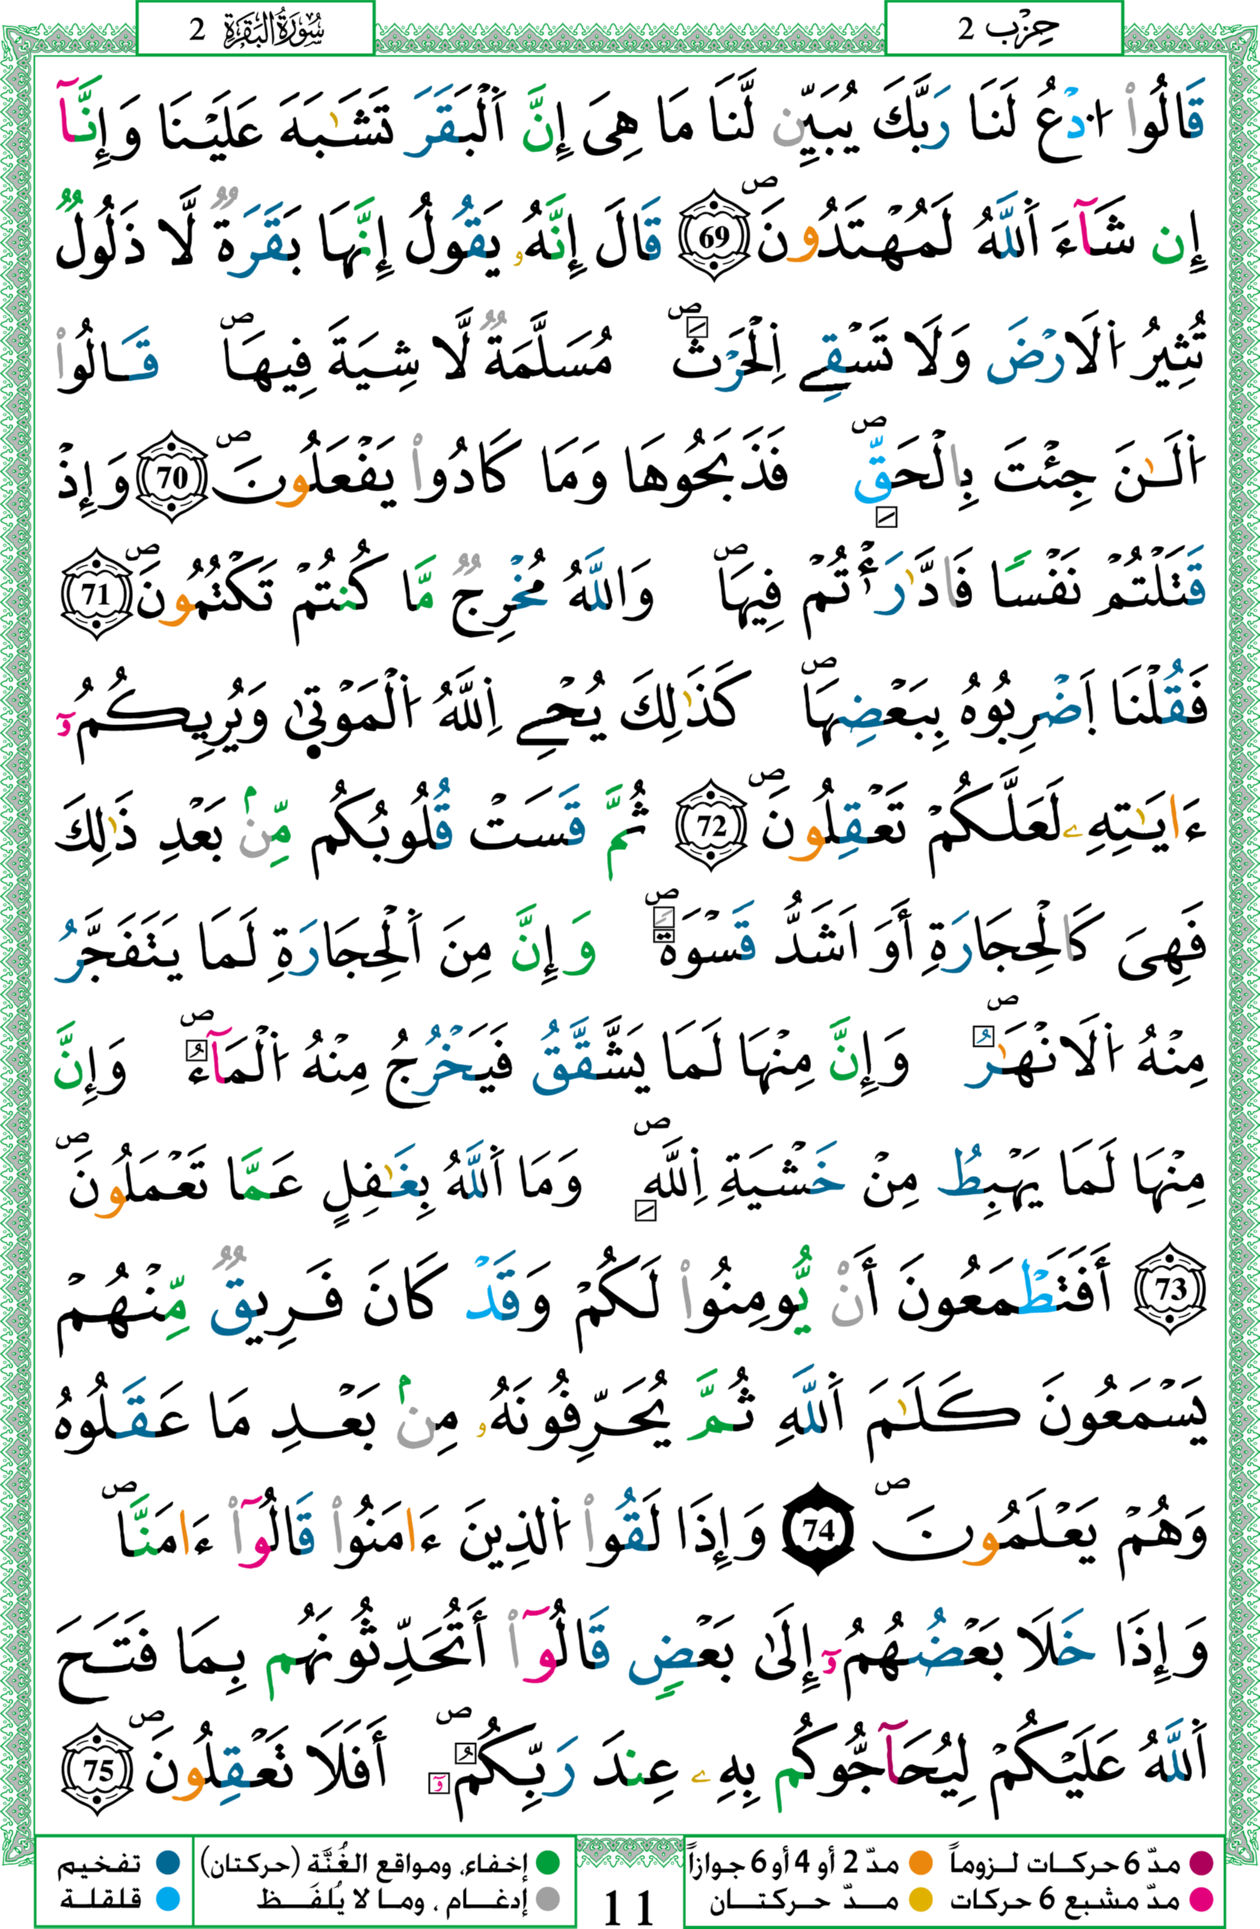 حِزْب 2
سُورَةُ البَقَرَةِ 2
قَالُواْ اُ۟دْعُ لَنَا رَبَّكَ يُبَيِّن لَّنَا مَا هِىَ إِنَّ اَ۬لْبَقَرَ تَشَٰبَهَ عَلَيْنَا وَإِنَّآ
إِن شَآءَ اَ۬للَّهُ لَمُهْتَدُونَۖ 69 قَالَ إِنَّهُۥ يَقُولُ إِنَّهَا بَقَرَةٞ لَّا ذَلُولٞ
تُثِيرُ اُ۬لَارْضَ وَلَا تَسْقِے اِ۬لْحَرْثَۖ مُسَلَّمَةٞ لَّا شِيَةَ فِيهَاۖ قَالُواْ
اُ۬لَٰنَ جِئْتَ بِالْحَقِّۖ فَذَبَحُوهَا وَمَا كَادُواْ يَفْعَلُونَۖ 70 وَإِذْ
قَتَلْتُمْ نَفْسًا فَادَّٰرَْٰٔتُمْ فِيهَاۖ وَاللَّهُ مُخْرِجٞ مَّا كُنتُمْ تَكْتُمُونَۖ 71
فَقُلْنَا اَ۪ضْرِبُوهُ بِبَعْضِهَاۖ كَذَٰلِكَ يُحْىِ اِ۬للَّهُ اُ۬لْمَوْتٜىٰ وَيُرِيكُمُۥٓ
ءَايَٰتِهِۦ لَعَلَّكُمْ تَعْقِلُونَۖ 72 ثُمَّ قَسَتْ قُلُوبُكُم مِّنۢ بَعْدِ ذَٰلِكَ
فَهِىَ كَالْحِجَارَةِ أَوَ اَشَدُّ قَسْوَةٗۖ وَإِنَّ مِنَ اَ۬لْحِجَارَةِ لَمَا يَتَفَجَّرُ
مِنْهُ اُ۬لَانْهَٰرُۖ وَإِنَّ مِنْهَا لَمَا يَشَّقَّقُ فَيَخْرُجُ مِنْهُ اُ۬لْمَآءُۖ وَإِنَّ
مِنْهَا لَمَا يَهْبِطُ مِنْ خَشْيَةِ اِ۬للَّهِۖ وَمَا اَ۬للَّهُ بِغَٰفِلٍ عَمَّا تَعْمَلُونَۖ
73 أَفَتَطْمَعُونَ أَنْ يُّومِنُواْ لَكُمْ وَقَدْ كَانَ فَرِيقٞ مِّنْهُمْ
يَسْمَعُونَ كَلَٰمَ اَ۬للَّهِ ثُمَّ يُحَرِّفُونَهُۥ مِنۢ بَعْدِ مَا عَقَلُوهُ
وَهُمْ يَعْلَمُونَۖ 74 وَإِذَا لَقُواْ اُ۬لذِينَ ءَامَنُواْ قَالُوٓاْ ءَامَنَّاۖ
وَإِذَا خَلَا بَعْضُهُمُۥٓ إِلَىٰ بَعْضٖ قَالُوٓاْ أَتُحَدِّثُونَهُم بِمَا فَتَحَ
اَ۬للَّهُ عَلَيْكُمْ لِيُحَآجُّوكُم بِهِۦ عِندَ رَبِّكُمُۥٓۖ أَفَلَا تَعْقِلُونَۖ 75
مدّ 6 حركات لـزوماً مدّ 2 أو 4 أو 6 جوازاً إخفاء، ومواقع الغُنَّة (حركتان) تفخيم
مدّ مشبع 6 حركات مـدّ حـركتـان إدغـام ، ومـا لا يُلفَـظ قلقلة
11